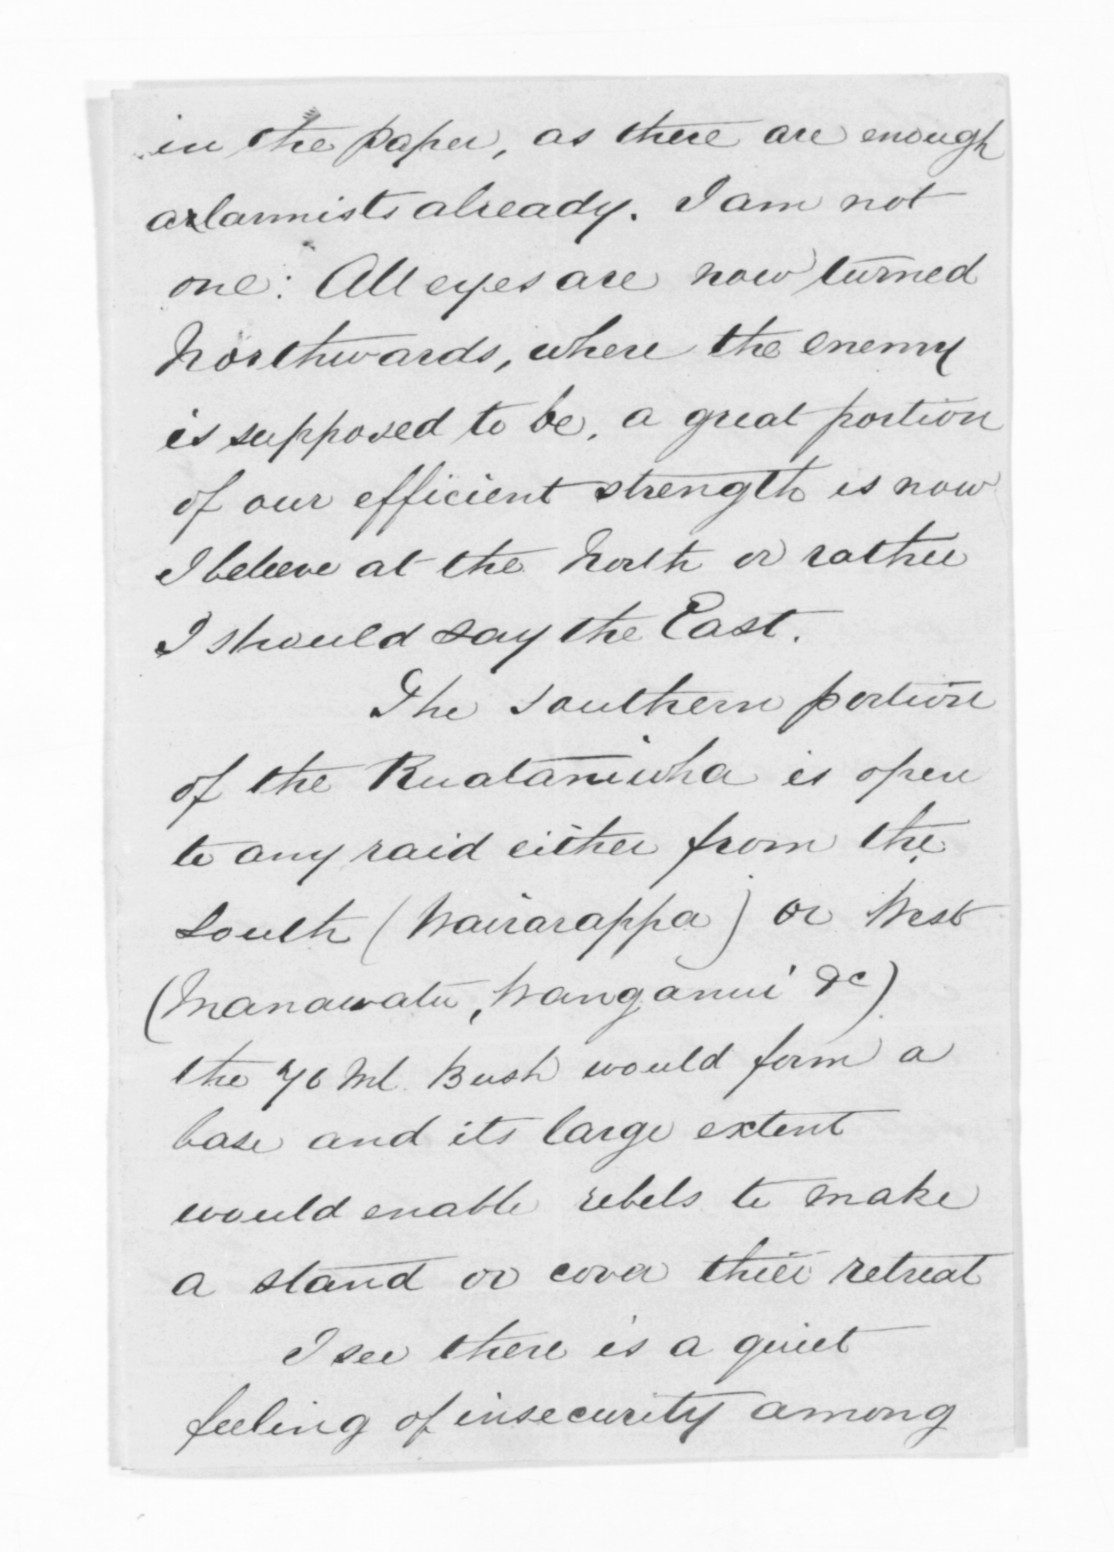 in the paper, as there are enough
alarmists already. I am not
one: All eyes are now turned
Northwards, where the enemy
is supposed to be, a great portion
of our efficient strength is now
I beleeve at the North or rather
I should say the East.
The Southern portion
of the Ruataniwha is open
to any raid either from the
South (Wairarappa) or West
(Manawatu, Wanganui &c)
the 70 Ml. Bush would form a
base and its large extent
would enable rebels to make
a stand or cover their retreat
I see there is a quiet
feeling of insecurity among